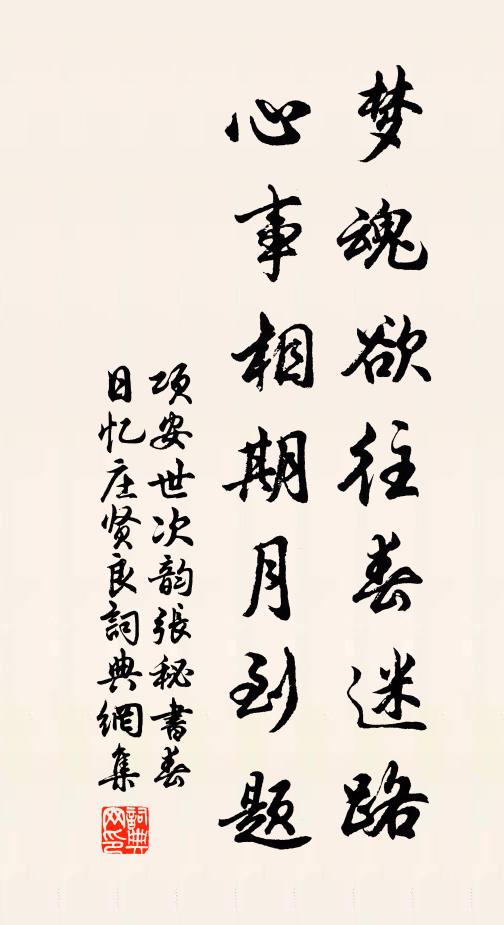 梦魂欲往春迷路
心事相期月到题
项安世次韵张秘书春
日忆庄贤良詞典網集
詞典網印